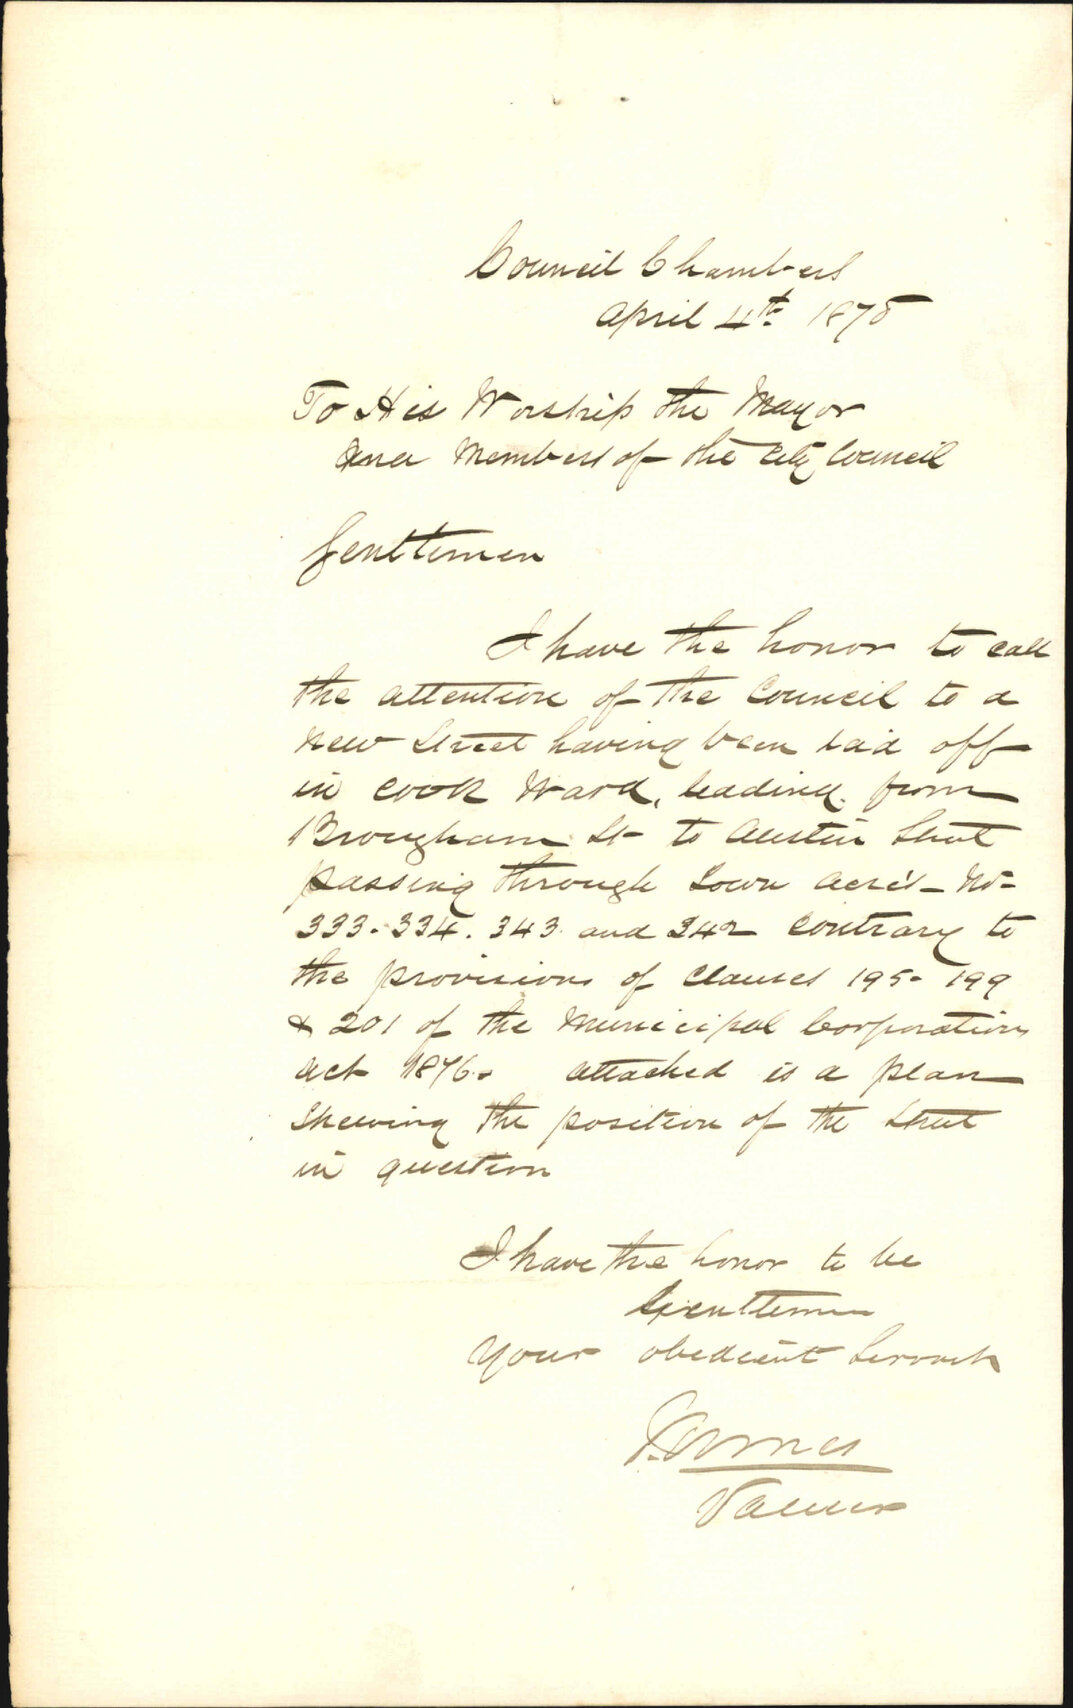 Council Chambers
April 4th 1878
To His Worship the Mayor
and Members of the City Council
Gentlemen
I have the honor to call
the attention of the Council to a
new Street having been laid off
in Cook Ward, leading from
Brougham St to Austin Street
passing through Town Acres No
333. 334. 343 and 342 contrary to
the provisions of Clauses 195. 199
& 201 of the Municipal Corporations
Act 1876. Attached is a plan
shewing the position of the Street
in question
I have the honor to be
Gentlemen
Your obedient Servant
Valuer